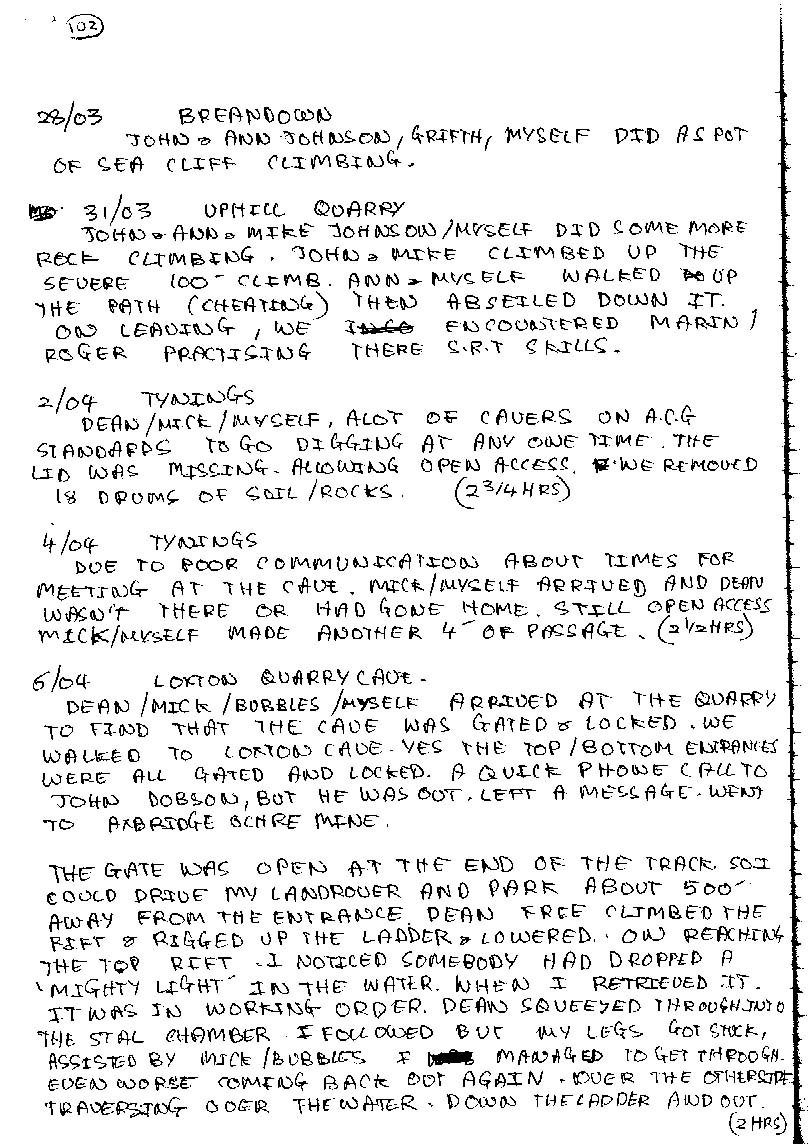 102
28/03 BREANDOWN
JOHN & ANN JOHNSON, GRIFTH, MYSELF DID A SPOT
OF SEA CLIFF CLIMBING.
31/03 UPHILL QUARRY
JOHN & ANN & MIKE JOHNSON/MYSELF DID SOME MORE
ROCK CLIMBING. JOHN & MIKE CLIMBED UP THE
SEVERE 100' CLIMB. ANN & MYSELF WALKED UP
THE PATH (CHEATING) THEN ABSEILED DOWN IT.
ON LEAVING, WE ENCOUNTERED MARIN/
ROGER PRACTISING THERE S.R.T SKILLS.
2/04 TYNINGS
DEAN/MICK/MYSELF, ALOT OF CAVERS ON A.C.G
STANDARDS TO GO DIGGING AT ANY ONE TIME. THE
LID WAS MISSING. ALLOWING OPEN ACCESS. WE REMOVED
18 DRUMS OF SOIL/ROCKS. (2 3/4 HRS)
4/04 TYNINGS
DUE TO POOR COMMUNICATION ABOUT TIMES FOR
MEETING AT THE CAVE. MICK/MYSELF ARRIVED AND DEAN
WASN'T THERE OR HAD GONE HOME. STILL OPEN ACCESS
MICK/MYSELF MADE ANOTHER 4' OF PASSAGE. (2 1/2 HRS)
6/04 LOXTON QUARRY CAVE.
DEAN/MICK/BUBBLES/MYSELF ARRIVED AT THE QUARRY
TO FIND THAT THE CAVE WAS GATED & LOCKED. WE
WALKED TO LOXTON CAVE. YES THE TOP/BOTTOM ENTRANCES
WERE ALL GATED AND LOCKED. A QUICK PHONE CALL TO
JOHN DOBSON, BUT HE WAS OUT. LEFT A MESSAGE. WENT
TO AXBRIDGE OCHRE MINE.
THE GATE WAS OPEN AT THE END OF THE TRACK. SO I
COULD DRIVE MY LANDROVER AND PARK ABOUT 500'
AWAY FROM THE ENTRANCE. DEAN FREE CLIMBED THE
RIFT & RIGGED UP THE LADDER & LOWERED. ON REACHING
THE TOP RIFT. I NOTICED SOMEBODY HAD DROPPED A
"MIGHTY LIGHT" IN THE WATER. WHEN I RETRIEVED IT.
IT WAS IN WORKING ORDER. DEAN SQUEEZED THROUGH INTO
THE STAL CHAMBER. I FOLLOWED BUT MY LEGS GOT STUCK,
ASSISTED BY MICK/BUBBLES I MANAGED TO GET THROUGH.
EVEN WORSE COMING BACK OUT AGAIN. OVER THE OTHERSIDE
TRAVERSING OVER THE WATER. DOWN THE LADDER AND OUT.
(2 HRS)